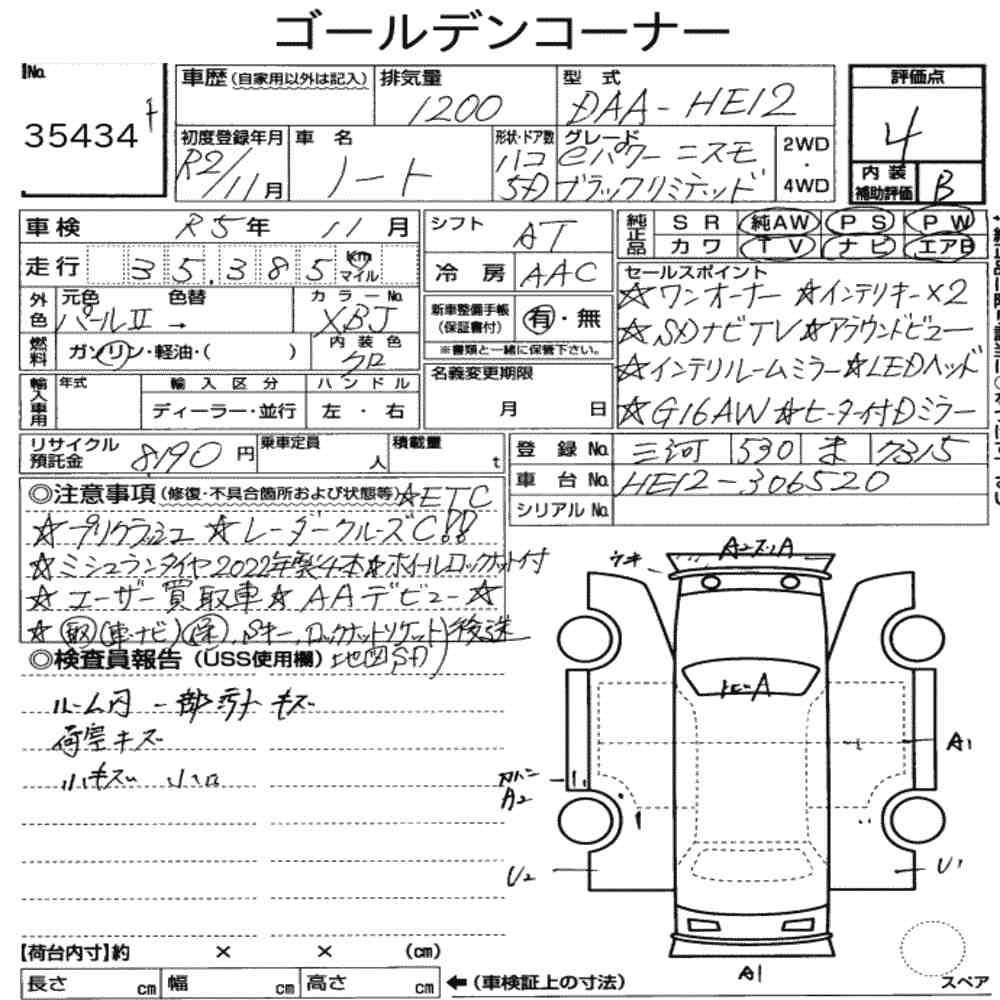 ゴールデンコーナー
No.
35434
車歴(自家用以外は記入)
排気量
1200
型式
DAA-HE12
評価点
4
初度登録年月
R2/11月
車名
ノート
形状・ドア数
ハコ
5D
グレード
eパワー ニスモ
ブラックリミテッド
2WD
・
4WD
内装
補助評価
B
車検 R5年 11月
走行 35,385 km マイル
シフト
AT
冷房 AAC
純正品
SR 純AW PS PW
カワ TV ナビ エアB
外色
元色 色替
パールII →
カラーNo.
XBJ
燃料
ガソリン・軽油・( )
内装色
クロ
新車整備手帳
(保証書付)
有・無
※書類と一緒に保管下さい。
セールスポイント
☆ワンオーナー ☆インテリキー×2
☆SDナビTV☆アラウンドビュー
☆インテリルームミラー☆LEDヘッド
☆G16AW☆ヒーター付Dミラー
輸入車用
年式
輸入区分
ディーラー・並行
ハンドル
左・右
名義変更期限
月 日
リサイクル
預託金
8190円
乗車定員
人
積載量
t
登録No. 三河 530 ま 7315
車台No. HE12-306520
シリアルNo.
◎注意事項(修復・不具合箇所および状態等)☆ETC
☆プリクラッシュ ☆レーダークルーズC!!
☆ミシュランタイヤ2022年製4本☆ホイールロックナット付
☆ユーザー買取車☆AAデビュー☆
☆取(車・ナビ)保、Sキー、ロックナットソケット、後送
地図SD)
◎検査員報告(USS使用欄)
ルーム内 一部汚れ キズ
荷室キズ
小キズ 小凹
ウキ
A2スリA
トビーA
A1
A2
U2
U1
A1
【荷台内寸】約 × × (cm)
長さ cm 幅 cm 高さ cm ←(車検証上の寸法)
スペア